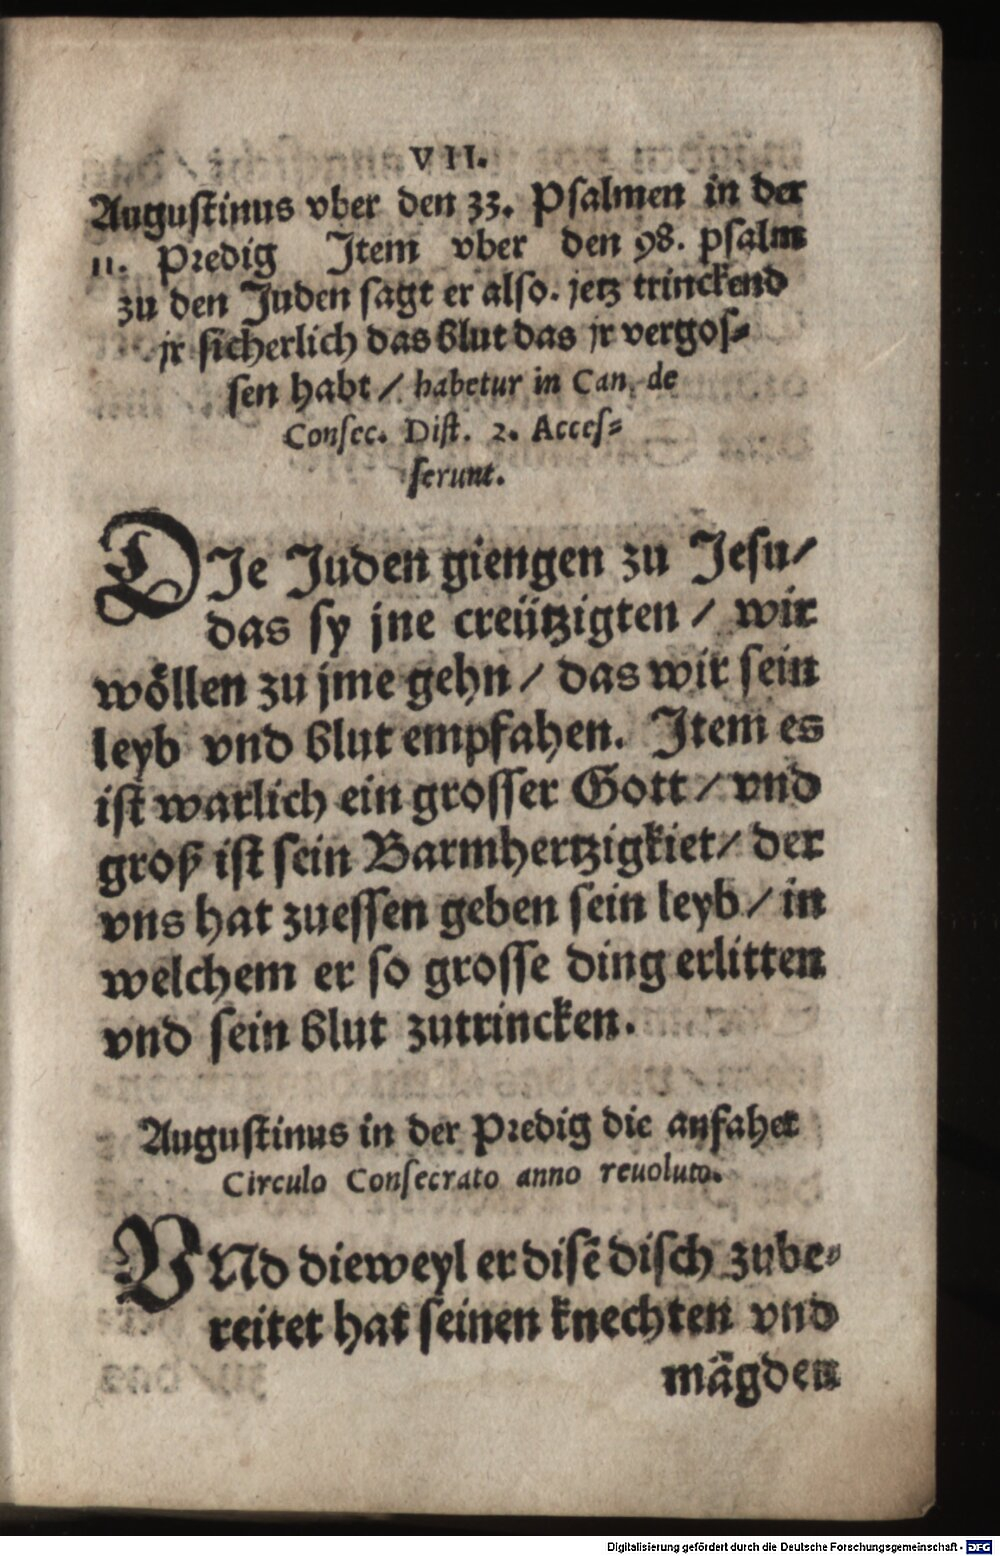 VII.
Augustinus vber den 33. Psalmen in der
11. Predig Jtem vber den 98. psalm
zu den Juden sagt er also. jetz trinckend
jr sicherlich das blut das jr vergos⸗
sen habt / habetur in Can. de
Consec. Dist. 2. Acces⸗
serunt.
DJe Juden giengen zu Jesu/
das sy jne creützigten / wir
wöllen zu jme gehn / das wir sein
leyb vnd blut empfahen. Jtem es
ist warlich ein grosser Gott / vnd
groß ist sein Barmhertzigkiet / der
vns hat zuessen geben sein leyb / in
welchem er so grosse ding erlitten
vnd sein blut zutrincken.
Augustinus in der Predig die anfahet
Circulo Consecrato anno reuoluto.
VNd dieweyl er disē disch zube⸗
reitet hat seinen knechten vnd
mägden
Digitalisierung gefördert durch die Deutsche Forschungsgemeinschaft - DFG